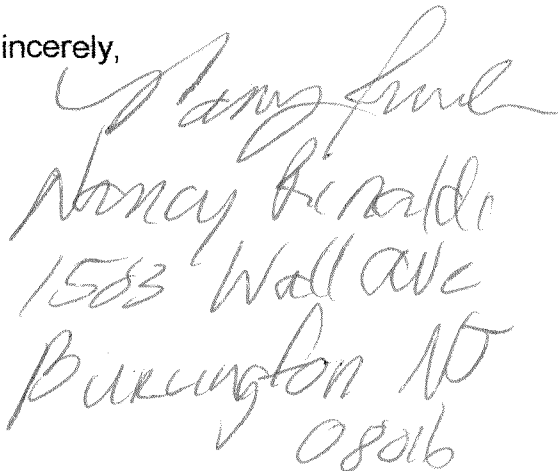 incerely,
Nancy Rinaldi
1583 Wall Ave
Burlington NJ
08016